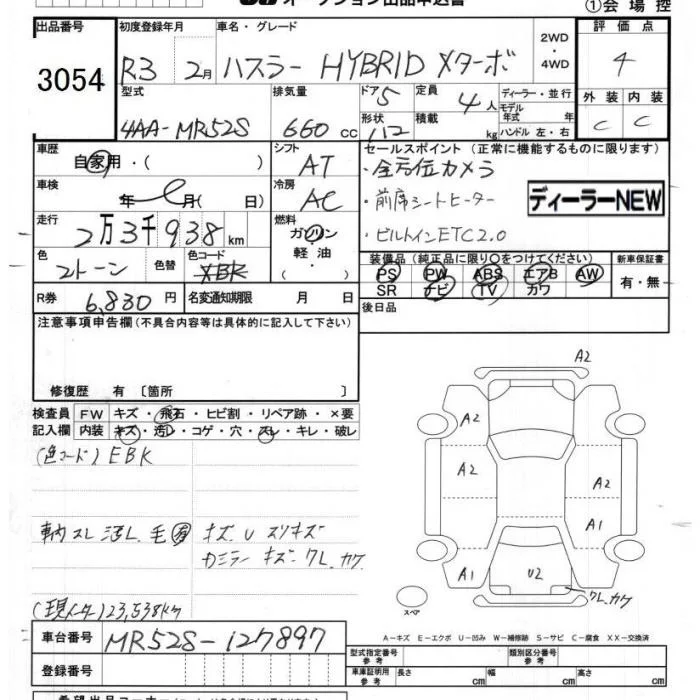 オークション出品申込書
①会場控
出品番号
3054
初度登録年月
R3 2月
車名・グレード
ハスラー HYBRID Xターボ
2WD
・
4WD
評価点
4
外装 内装
C C
型式
4AA-MR52S
排気量
660 cc
ドア 5
形状
定員 4人
積載 kg
ディーラー・並行
モデル年式 年
ハンドル 左・右
車歴
自家用・( )
シフト
AT
車検
年 月( 日)
冷房
AC
走行
2万3千938km
燃料
ガソリン
軽油・
( )
色
2トーン
色替
色コード
XBK
R券 6,830円
名変通知期限 月 日
セールスポイント (正常に機能するものに限ります)
・全方位カメラ
・前席シートヒーター
・ビルトインETC2.0
ディーラーNEW
装備品(純正品に限り○をつけてください)
PS PW ABS エアB AW
SR ナビ TV カワ
新車保証書
有・無
後日品
注意事項申告欄(不具合内容等は具体的に記入して下さい)
修復歴 有〔箇所 〕
検査員
記入欄
FW キズ・飛石・ヒビ割・リペア跡・×要
内装 キズ・汚レ・コゲ・穴・スレ・キレ・破レ
(色コード)EBK
車内スレ 汚レ 毛有
キズ U スリキズ
カミラー キズ・ワレ、カケ
(現メータ)23,538km
A2
A2
A2
A2
A1
A1
U2
ワレ、カケ
スペア
A-キズ E-エクボ U-凹み W-補修跡 S-サビ C-腐食 XX-交換済
車台番号
MR52S-127897
登録番号
型式指定番号
参考
類別区分番号
参考
車庫証明用
参考
長さ cm
幅 cm
高さ cm